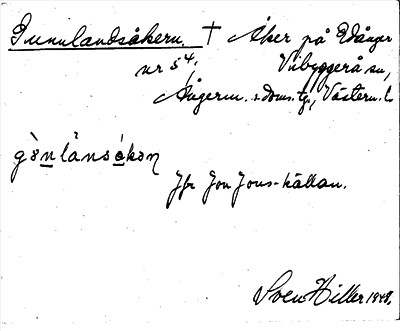 Gunnlandsåkern. † Åker på Edånger
nr 54, Vibyggerå sn,
Ångerm. s. doms. tg., Västern. l.
Jfr Jon Jons-källan.
Sven Hiller 1948.